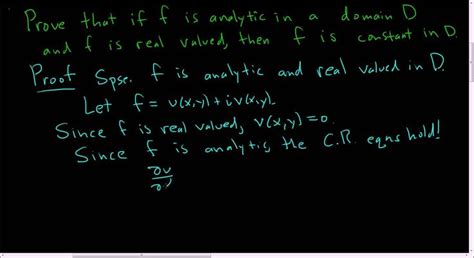 Prove that if f is analytic in a domain D
and f is real valued, then f is constant in D.
Proof Spse. f is analytic and real valued in D.
Let f = u(x,y) + i v(x,y).
Since f is real valued, v(x,y) = 0.
Since f is analytic, the C.R. eqns hold!